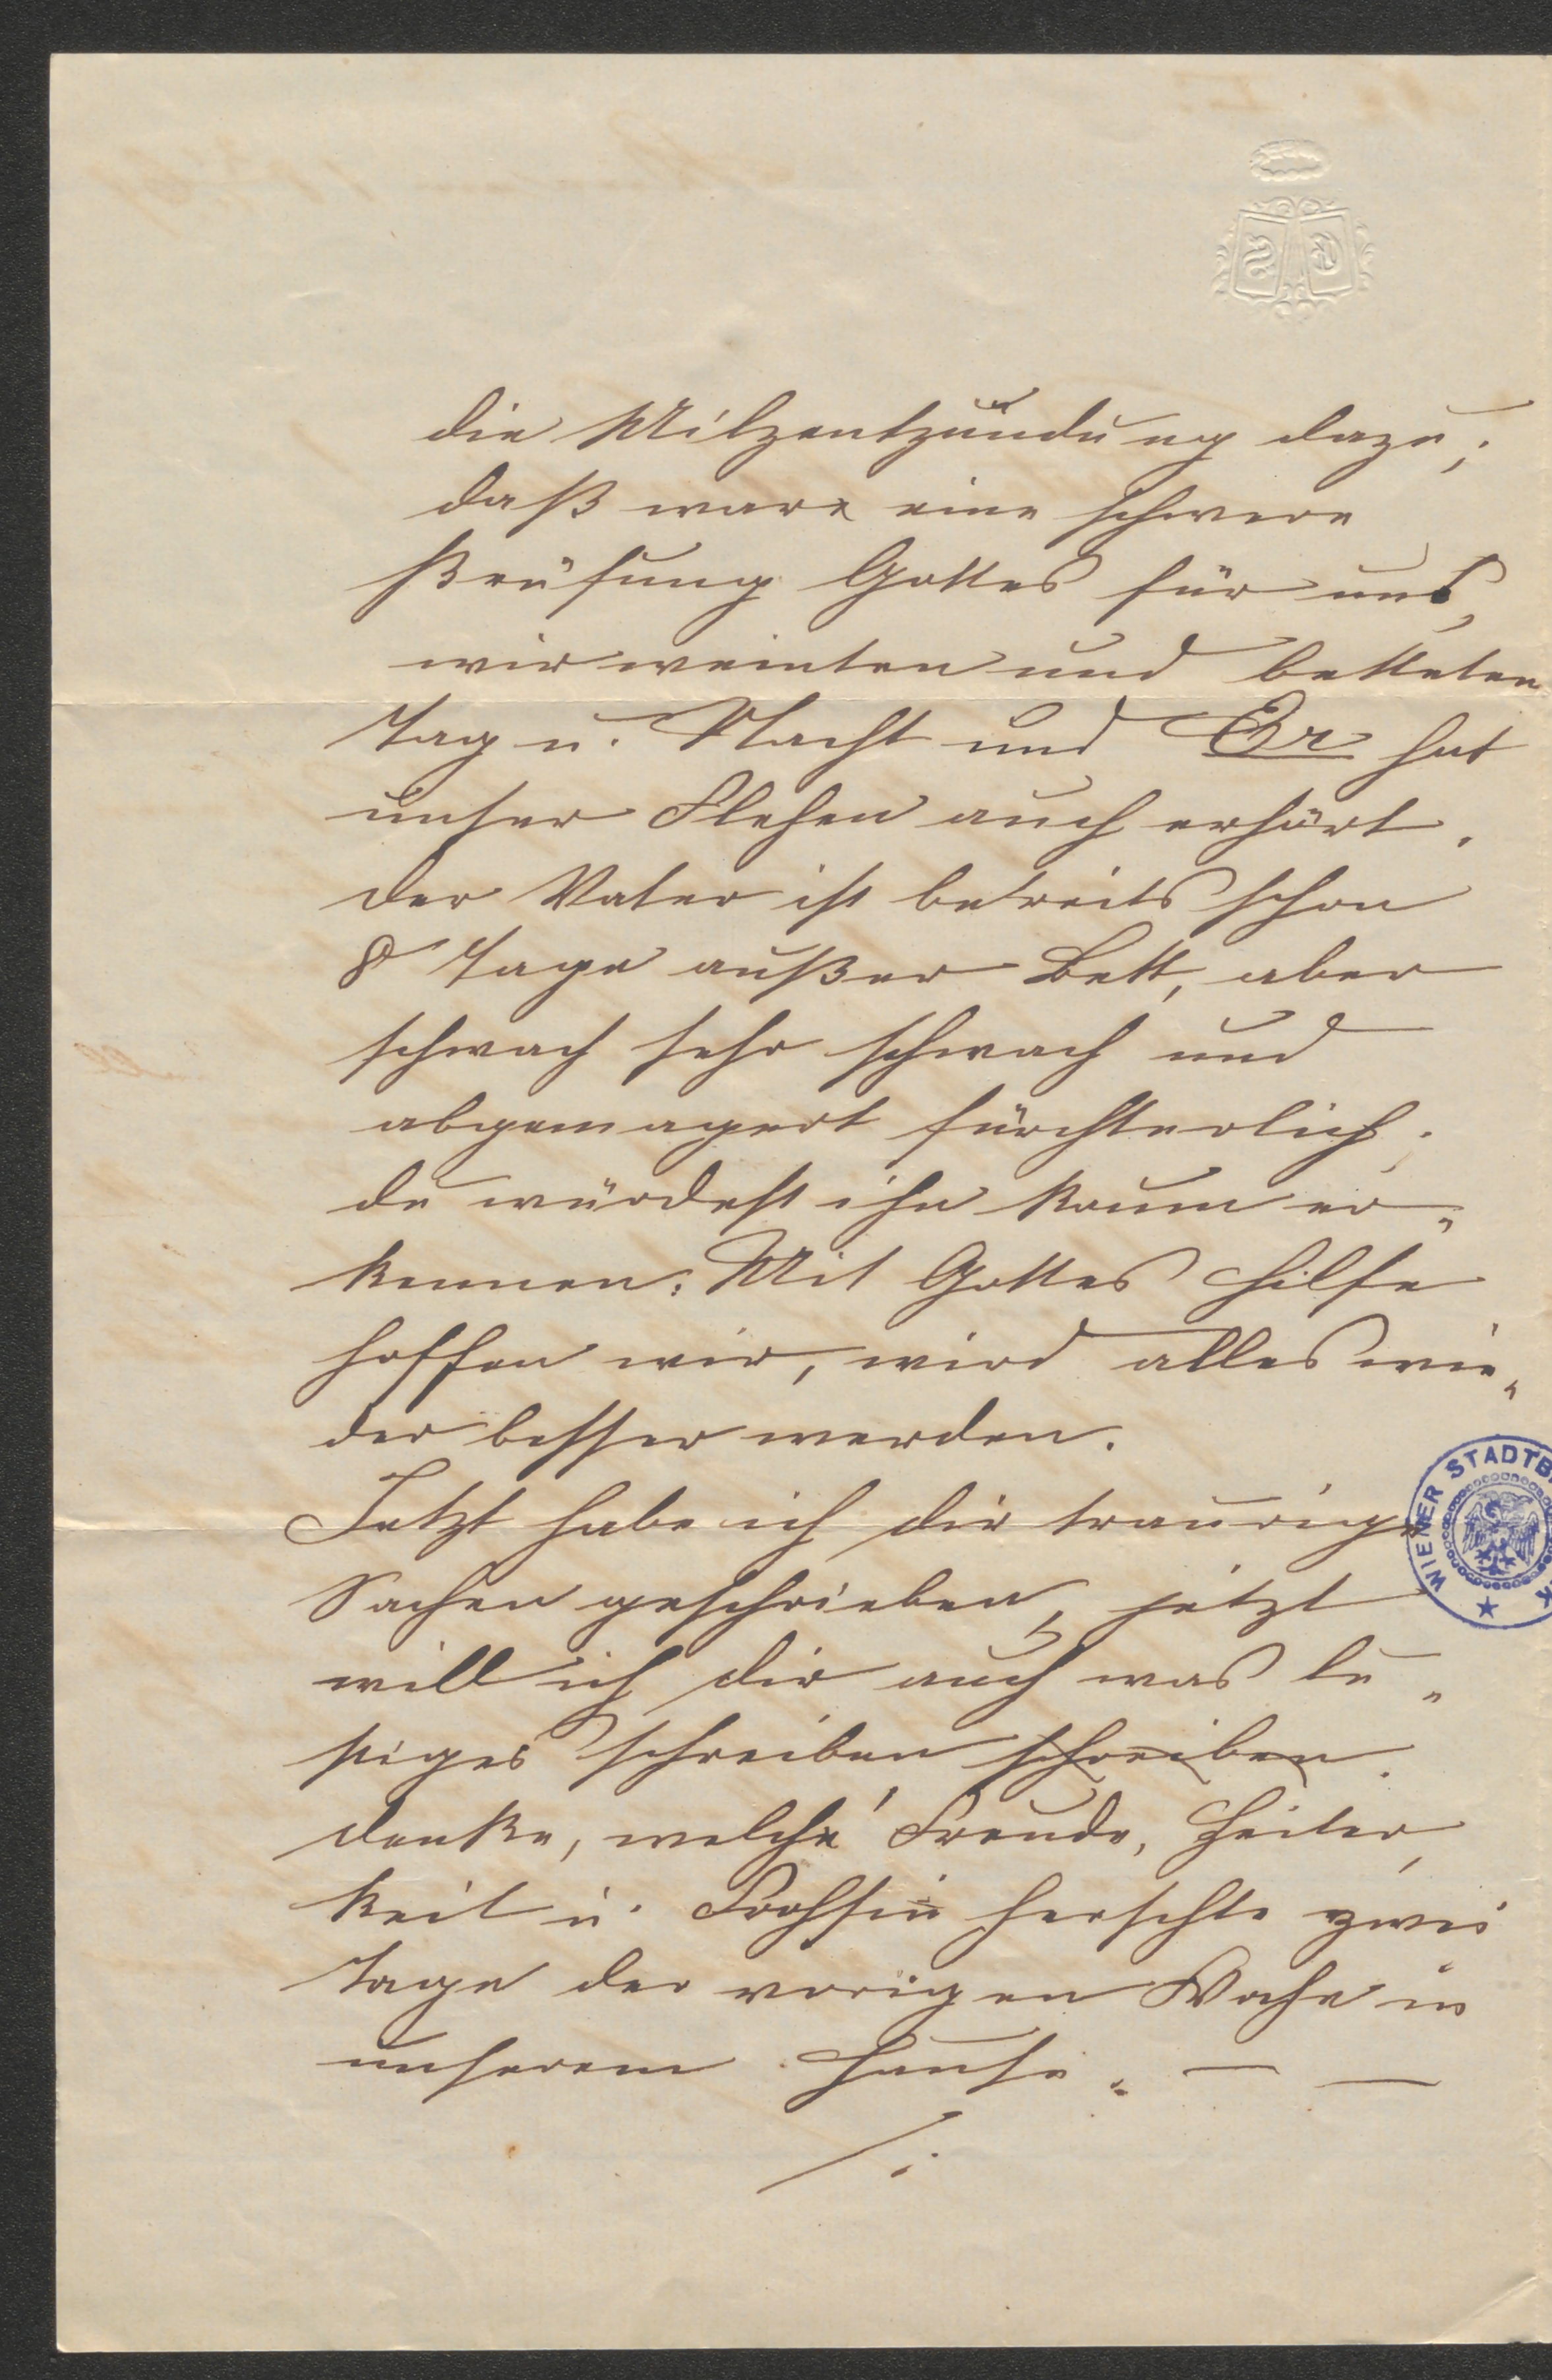 die Milzentzündung dazu;
daß ware eine schwere
Prüfung Gottes für uns,
wir weinten und betteten
Tag u. Nacht und Er hat
unser Flehen auch erhört.
der Vater ist bereits schon
8 Tage außer Bett, aber
schwach sehr schwach und
abgemagert fürchterlich;
du würdest ihn kaum er„
kennen. Mit Gottes Hilfe
hoffen wir, wird alles wie„
der besser werden.
Jetzt habe ich dir traurige
Sachen geschrieben, jetzt
will ich dir auch was lu„
stiges schreiben schreiben.
denke, welche Freude, Heiter„
keit u. Frohsin herschte zwei
Tage der vorigen Woche in
unserem Hause. — —
/.
WIENER STADTB